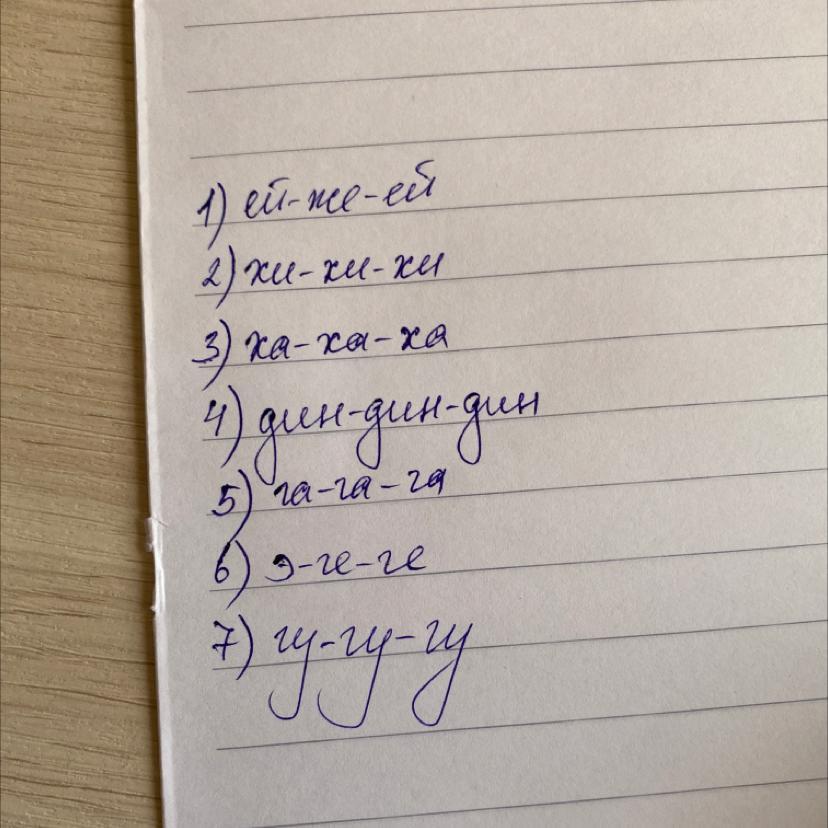 1) ей-же-ей
2) хи-хи-хи
3) ха-ха-ха
4) дин-дин-дин
5) га-га-га
6) э-ге-ге
7) гу-гу-гу